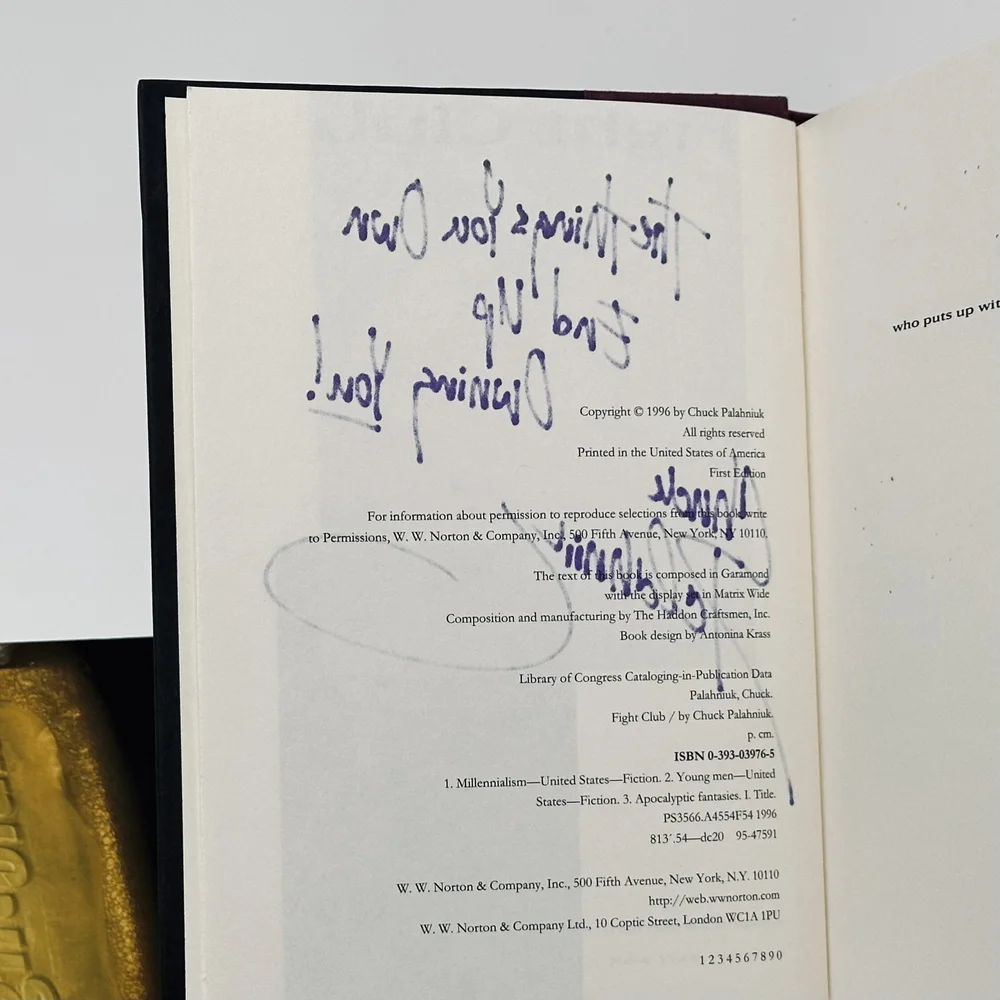 The Things You Own
End Up
Owning You!
Copyright © 1996 by Chuck Palahniuk
All rights reserved
Printed in the United States of America
First Edition
Chuck
Palahniuk
For information about permission to reproduce selections from this book, write
to Permissions, W. W. Norton & Company, Inc., 500 Fifth Avenue, New York, NY 10110.
The text of this book is composed in Garamond
with the display set in Matrix Wide
Composition and manufacturing by The Haddon Craftsmen, Inc.
Book design by Antonina Krass
Library of Congress Cataloging-in-Publication Data
Palahniuk, Chuck.
Fight Club / by Chuck Palahniuk.
p. cm.
ISBN 0-393-03976-5
1. Millennialism—United States—Fiction. 2. Young men—United
States—Fiction. 3. Apocalyptic fantasies. I. Title.
PS3566.A4554F54 1996
813'.54—dc20 95-47591
W. W. Norton & Company, Inc., 500 Fifth Avenue, New York, N.Y. 10110
http://web.wwnorton.com
W. W. Norton & Company Ltd., 10 Coptic Street, London WC1A 1PU
1 2 3 4 5 6 7 8 9 0
who puts up wit